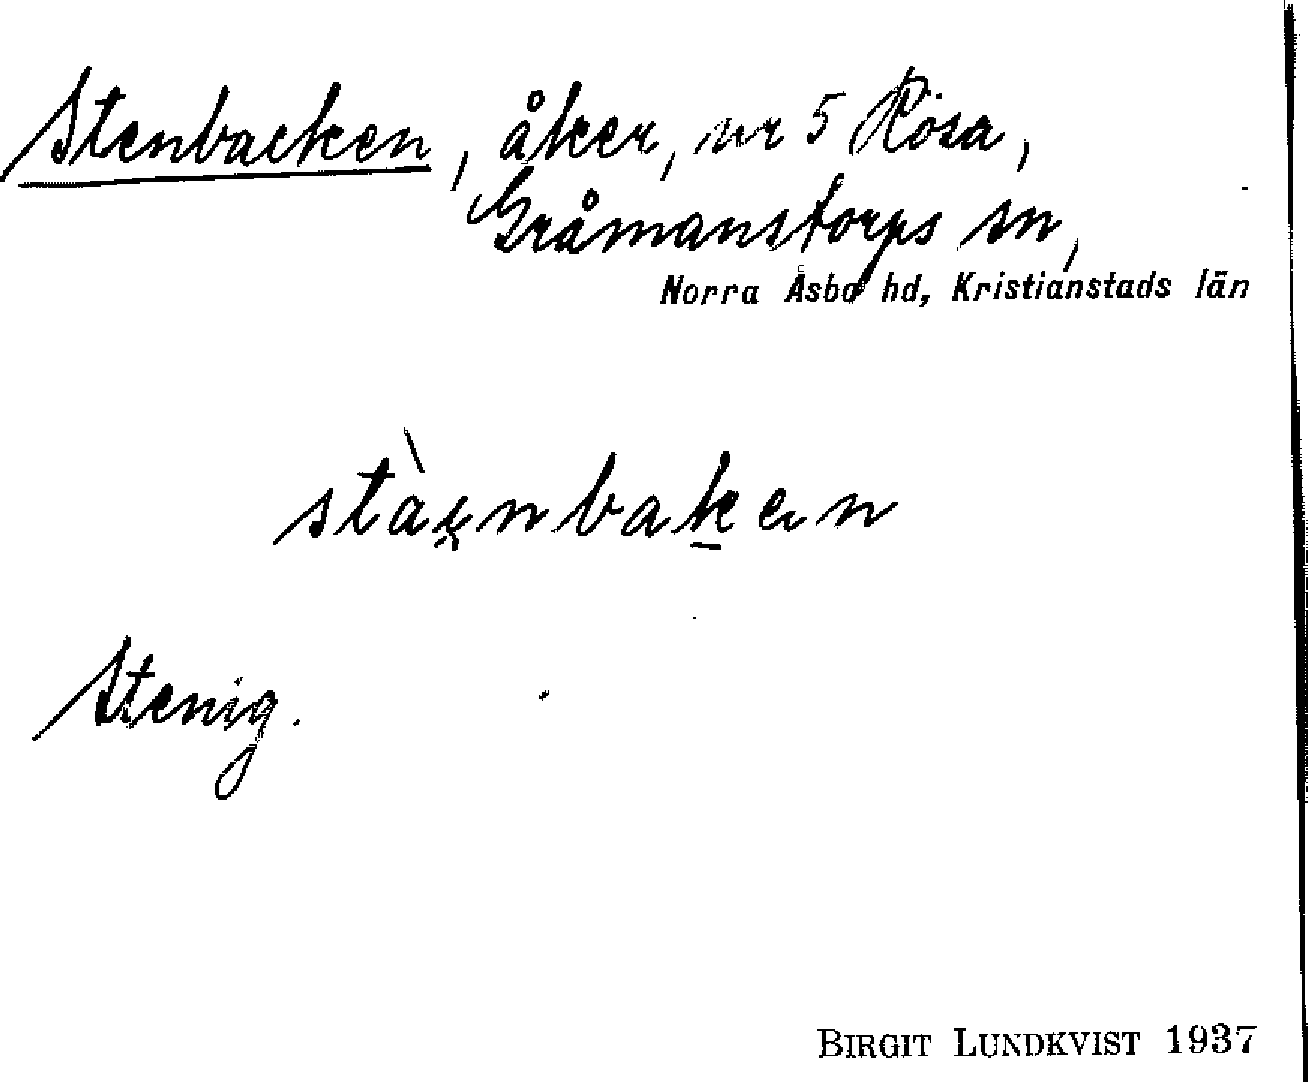 Stenbacken, åker, nr 5 Rösa,
Gråmanstorps sn,
Norra Åsbo hd, Kristianstads län
stàe̯nbak̠ən
Stenig.
BIRGIT LUNDKVIST 1937